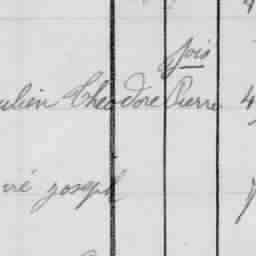 fois
ulien Théodore Pierre 4
né joseph